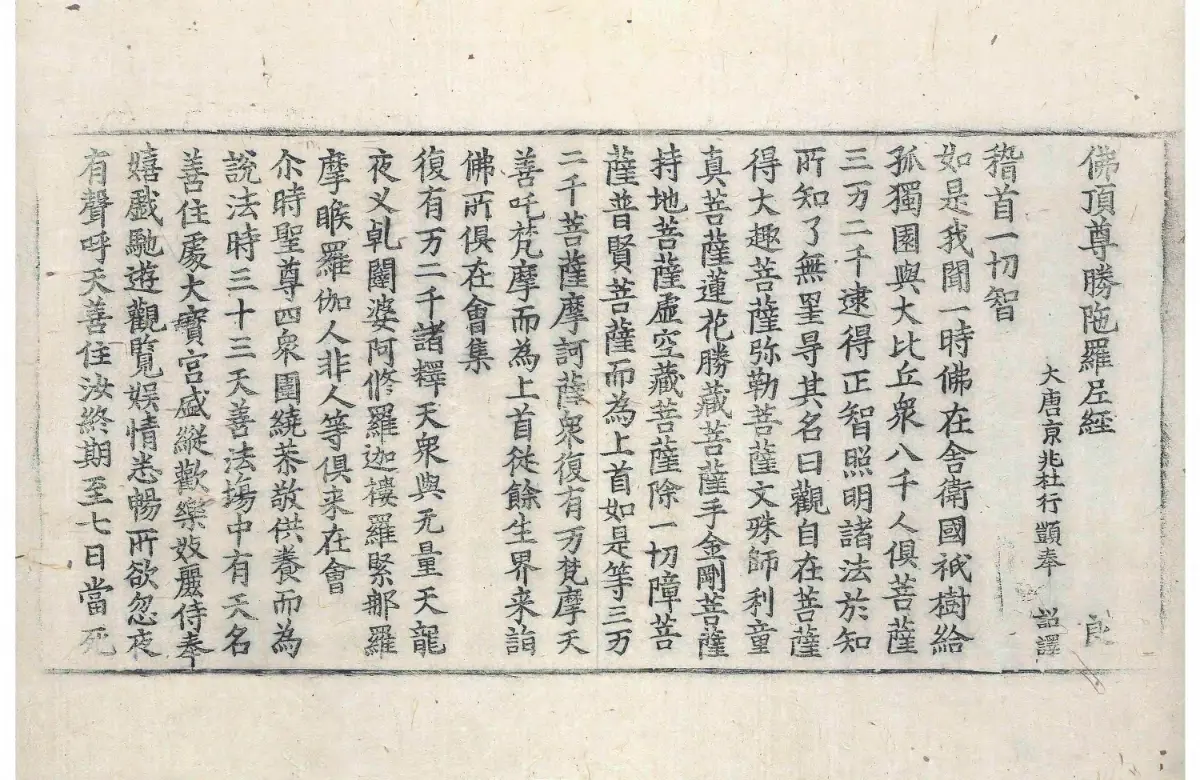 佛頂尊勝陁羅尼經
大唐京兆杜行顗奉 詔譯
稽首一切智
如是我聞一時佛在舍衛國祇樹給
孤獨園與大比丘衆八千人俱菩薩
三万二千逮得正智照明諸法於知
所知了無罣㝵其名曰觀自在菩薩
得大趣菩薩弥勒菩薩文殊師利童
真菩薩蓮花勝藏菩薩手金剛菩薩
持地菩薩虛空藏菩薩除一切障菩
薩普賢菩薩而為上首如是等三万
二千菩薩摩訶薩衆復有万梵摩天
善吒梵摩而為上首從餘生界来詣
佛所俱在會集
復有万二千諸釋天衆與无量天龍
夜叉乹闥婆阿修羅迦樓羅緊那羅
摩睺羅伽人非人等俱来在會
尒時聖尊四衆圍繞恭敬供養而為
說法時三十三天善法場中有天名
善住處大寶宮盛縱歡樂妓麗侍奉
嬉戲馳遊觀覽娱情悉暢所欲忽夜
有聲呼天善住汝終期至七日當死